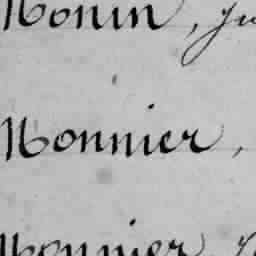 Monin, Ju
Monnier,
Monnier